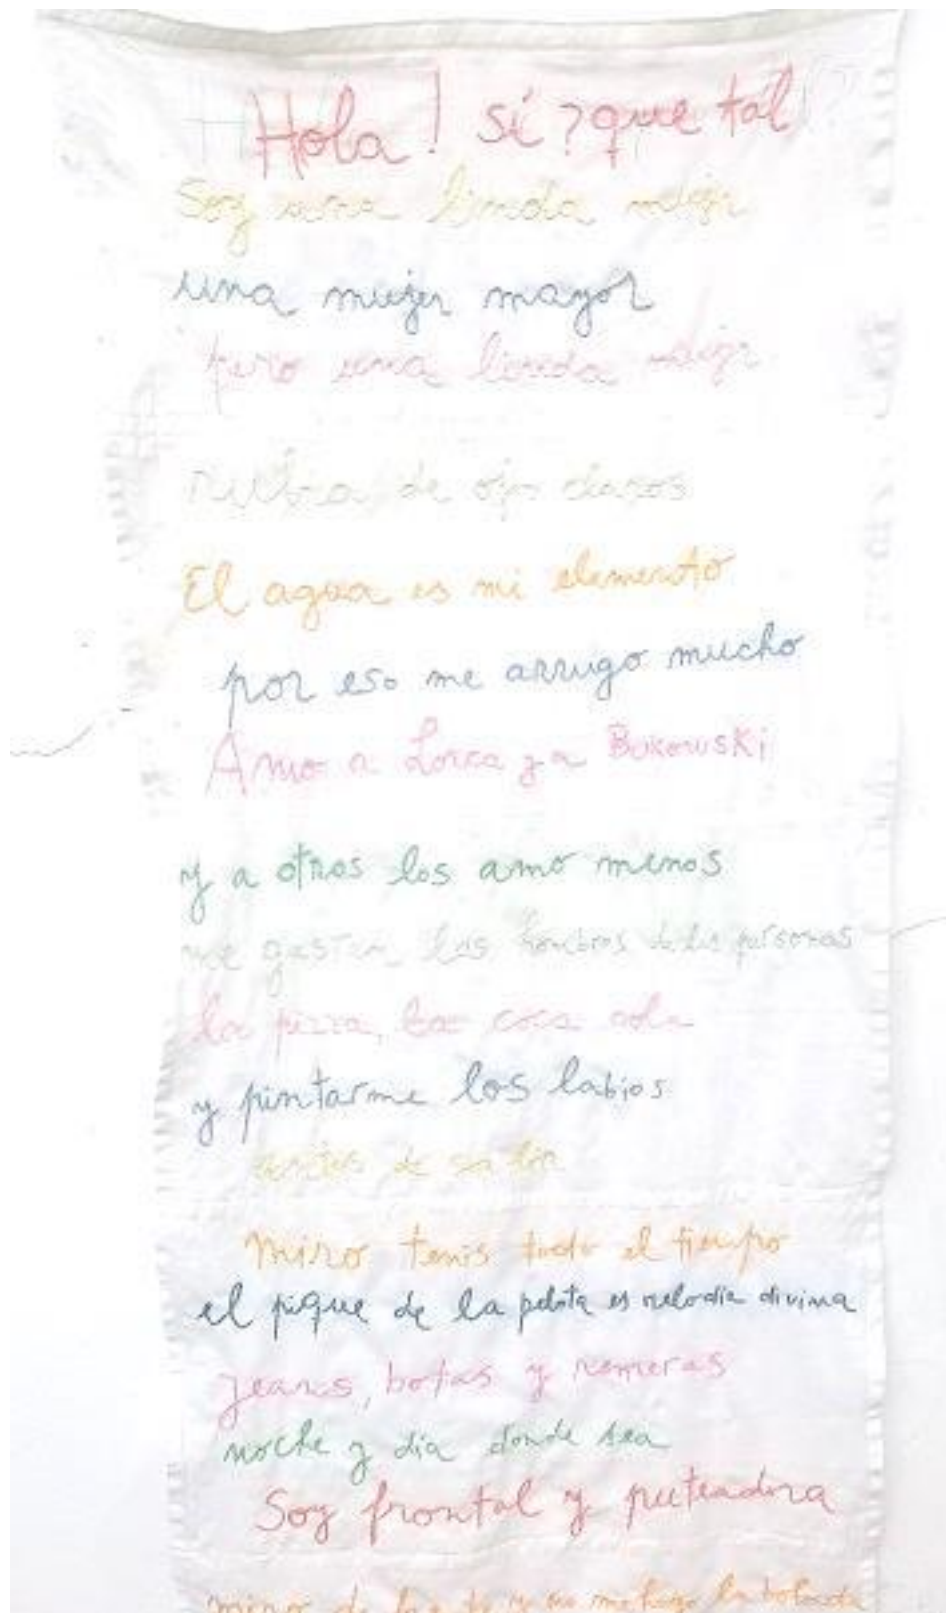 Hola! sí? que tál
Soy una linda mujer
una mujer mayor
pero una linda mujer
rubia de ojos claros
El agua es mi elemento
por eso me arrugo mucho
Amo a Lorca y a Bukowski
y a otros los amo menos
me gustan los hombres de las personas
la pizza, la coca cola
y pintarme los labios
antes de salir
miro tenis todo el tiempo
el pique de la pelota es melodia divina
jeans, botas y remeras
noche y dia donde sea
Soy frontal y puteadora
miro de frente y no me hago la boluda